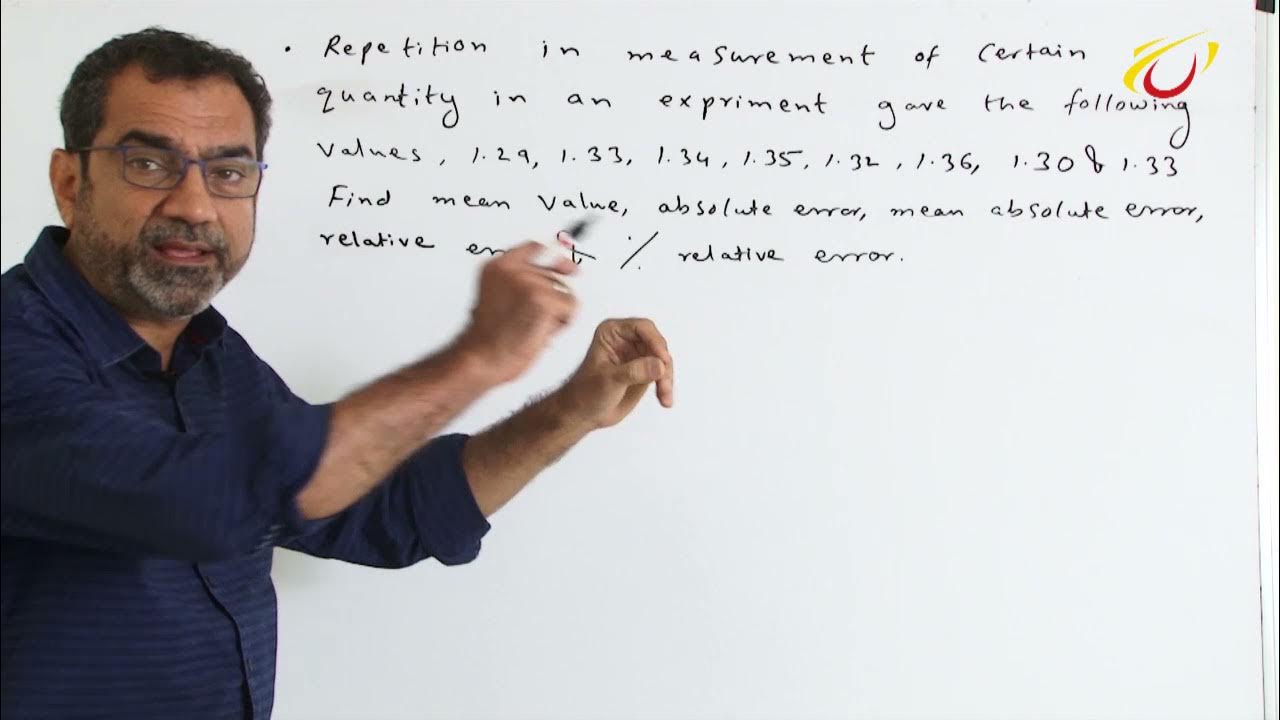 • Repetition in measurement of certain
quantity in an expriment gave the following
values, 1.29, 1.33, 1.34, 1.35, 1.32, 1.36, 1.30 & 1.33
Find mean value, absolute error, mean absolute error,
relative & % relative error.